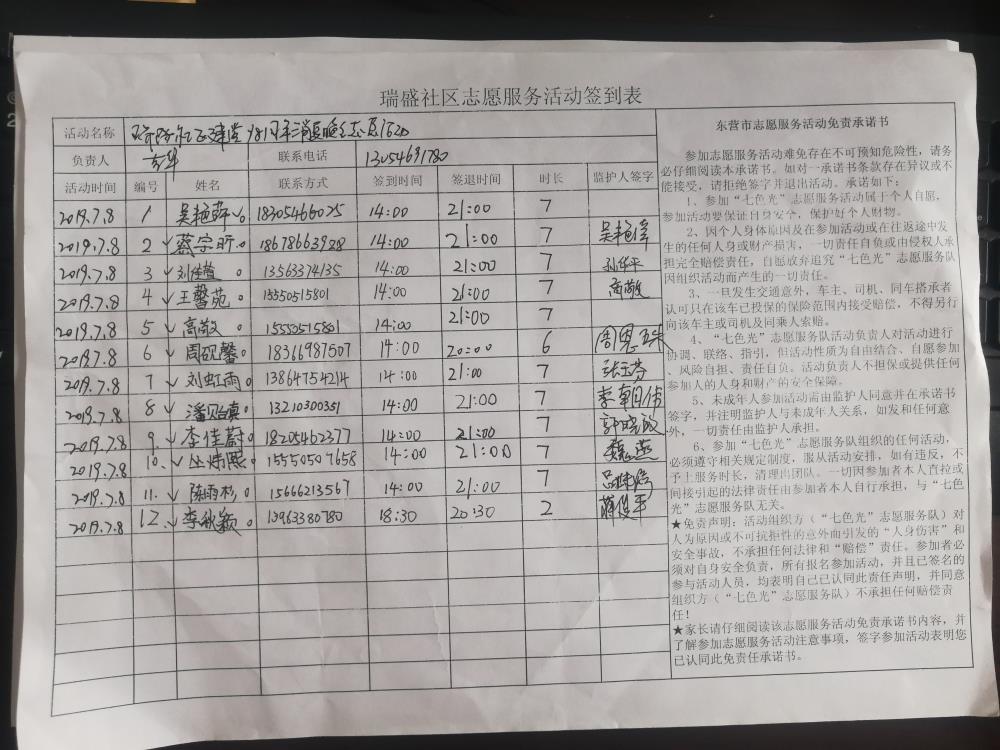 瑞盛社区志愿服务活动签到表
活动名称
负责人 联系电话 13054691780
活动时间 编号 姓名 联系方式 签到时间 签退时间 时长 监护人签字
2019.7.8 1 18305466025 14:00 21:00 7
2019.7.8 2 蔡宗昕 18678663928 14:00 21:00 7
2019.7.8 3 刘佳萱 13563374135 14:00 21:00 7 孙华平
2019.7.8 4 王馨苑 15550515801 14:00 21:00 7 高敬
2019.7.8 5 高敬 15550515801 14:00 21:00 7
2019.7.8 6 周砚馨 18366987507 14:00 20:00 6
2019.7.8 7 刘虹雨 13864754214 14:00 21:00 7 张玉芬
2019.7.8 8 13210300351 14:00 21:00 7
2019.7.8 9. 李佳蔚 18205462377 14:00 21:00 7 郭晓敏
2019.7.8 10. 15550507658 14:00 21:00 7 魏燕
2019.7.8 11. 陈雨杉 15666213567 14:00 21:00 7
2019.7.8 12. 李秋颖 13963380780 18:30 20:30 2
东营市志愿服务活动免责承诺书
参加志愿服务活动难免存在不可预知危险性，请务
必仔细阅读本承诺书。如对一承诺书条款存在异议或不
能接受，请拒绝签字并退出活动。承诺如下：
1、参加“七色光”志愿服务活动属于个人自愿，
参加活动要保证自身安全，保护好个人财物。
2、因个人身体原因及在参加活动或在往返途中发
生的任何人身或财产损害，一切责任自负或由侵权人承
担完全赔偿责任，自愿放弃追究“七色光”志愿服务队
因组织活动而产生的一切责任。
3、一旦发生交通意外，车主、司机、同车搭承者
认可只在该车已投保的保险范围内接受赔偿，不得另行
向该车主或司机及同乘人索赔。
4、“七色光”志愿服务队活动负责人对活动进行
协调、联络、指引，但活动性质为自由结合、自愿参加
、风险自担、责任自负。活动负责人不担保或提供任何
参加人的人身和财产的安全保障。
5、未成年人参加活动需由监护人同意并在承诺书
签字，并注明监护人与未成年人关系，如发和任何意
外，一切责任由监护人承担。
6、参加“七色光”志愿服务队组织的任何活动，
必须遵守相关规定制度，服从活动安排，如有违反，不
予上服务时长，清理出团队。一切因参加者本人直拉或
间接引起的法律责任由参加者本人自行承担，与“七色
光”志愿服务队无关。
★免责声明：活动组织方（“七色光”志愿服务队）对
人为原因或不可抗拒性的意外而引发的“人身伤害”和
安全事故，不承担任何法律和“赔偿”责任。参加者必
须对自身安全负责，所有报名参加活动，并且已签名的
参与活动人员，均表明自己已认同此责任声明，并同意
组织方（“七色光”志愿服务队）不承担任何赔偿责
任！
★家长请仔细阅读该志愿服务活动免责承诺书内容，并
了解参加志愿服务活动注意事项，签字参加活动表明您
已认同此免责任承诺书。